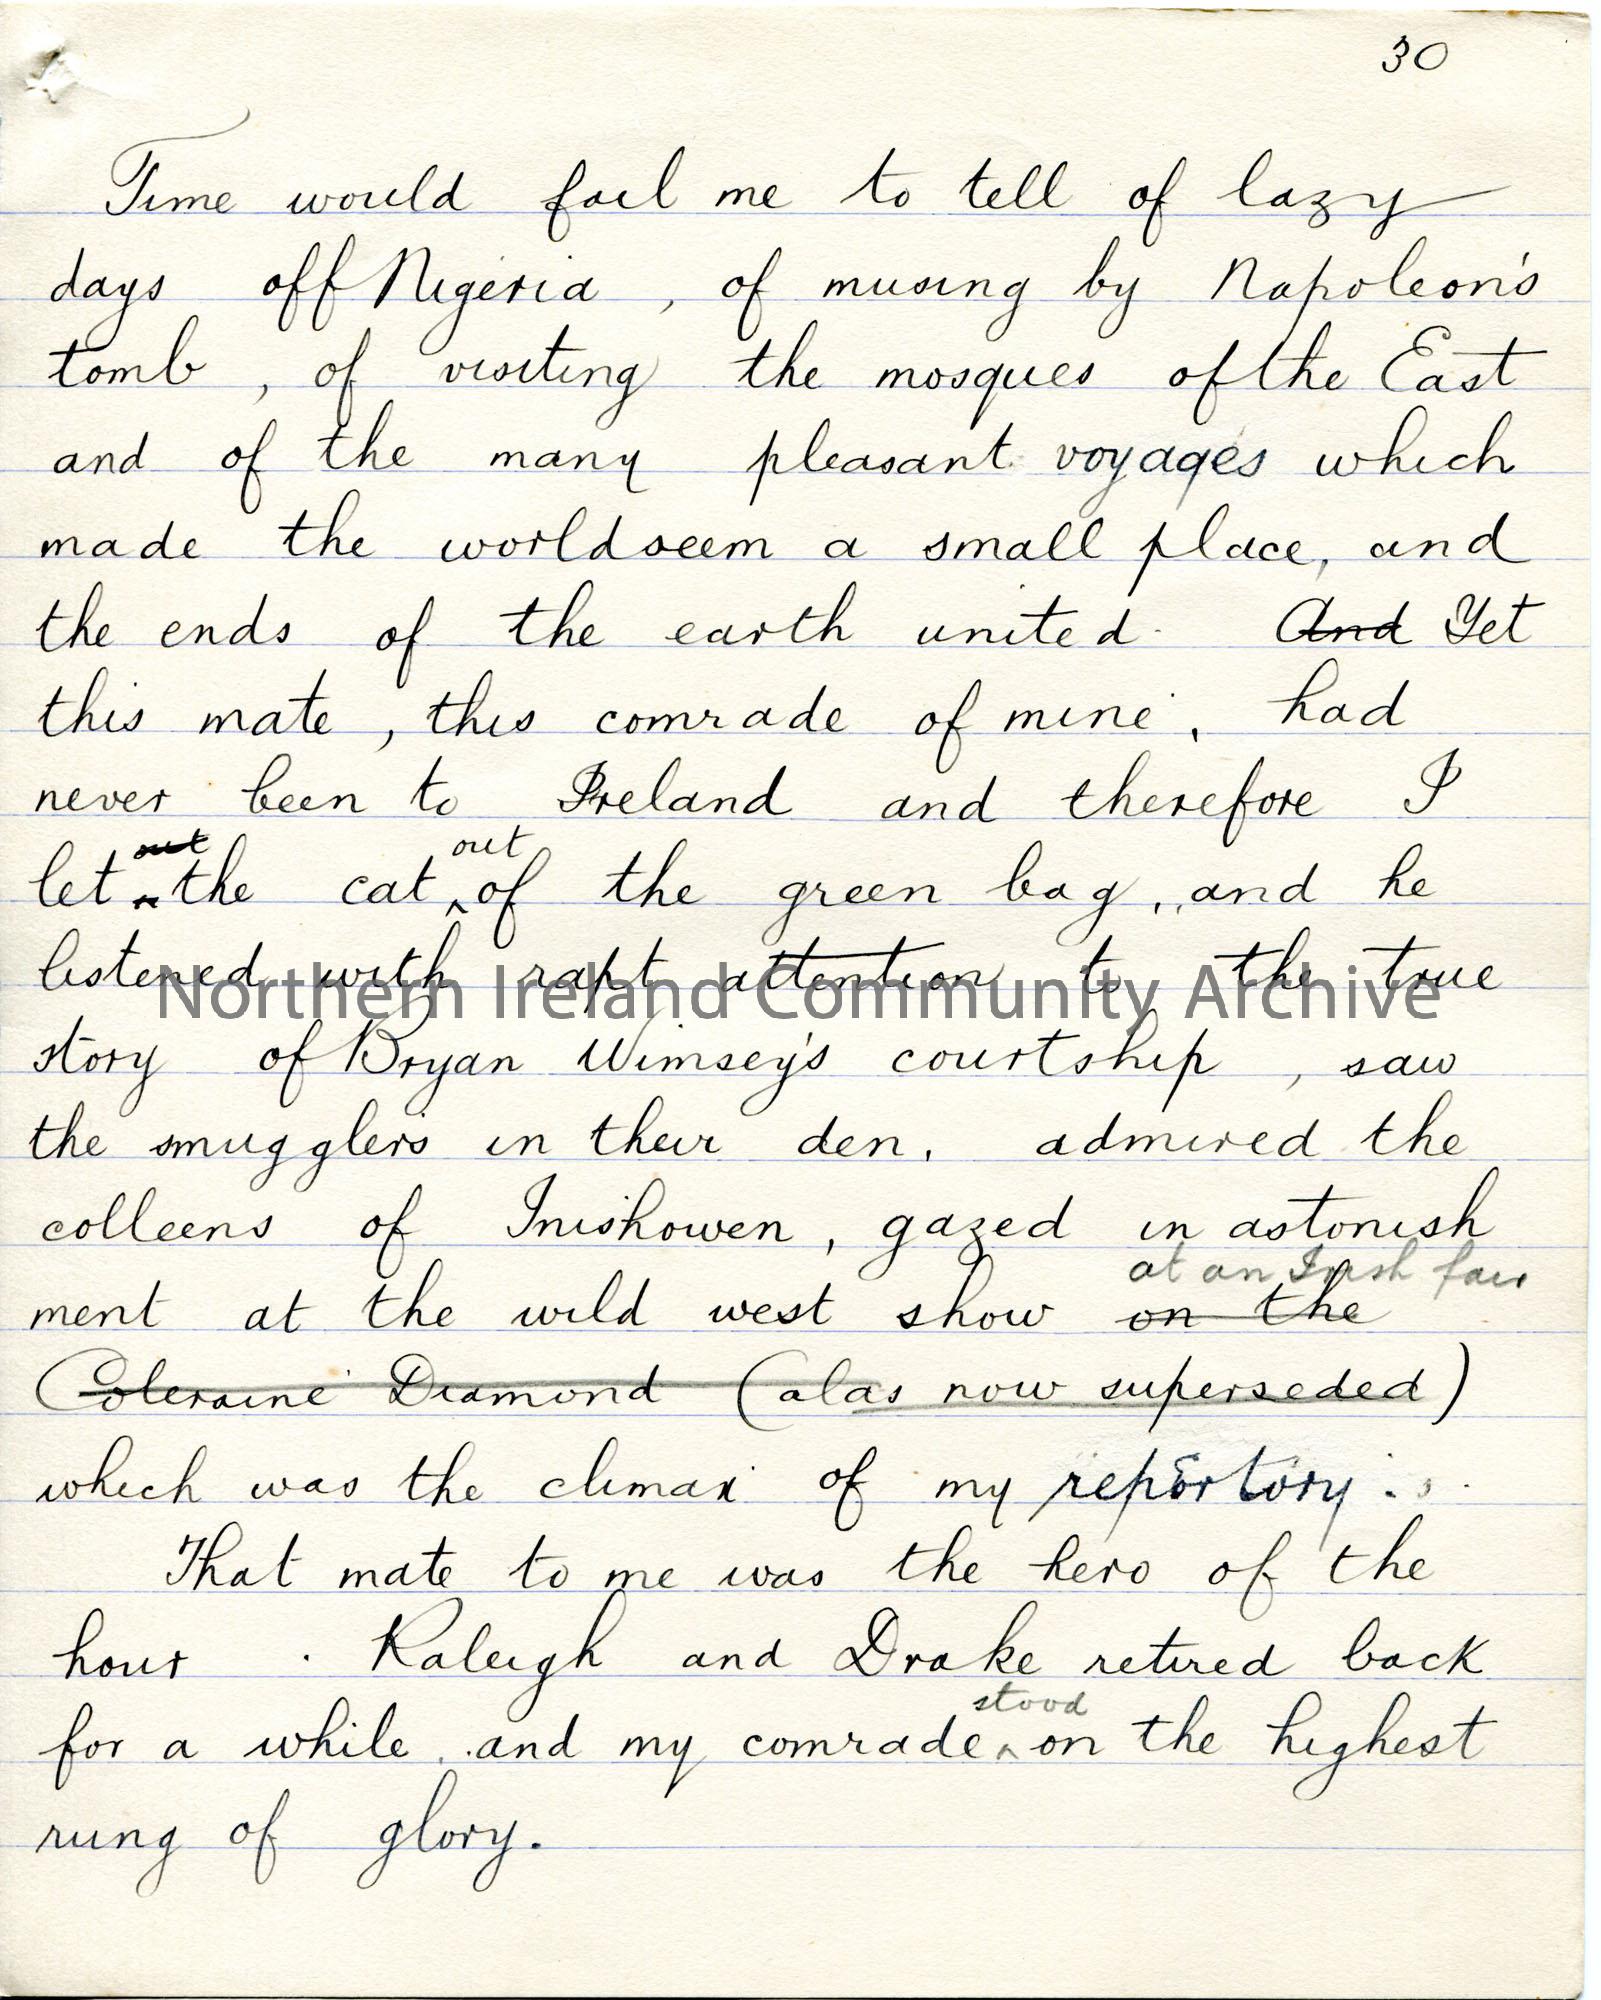 30
Time would fail me to tell of lazy
days off Nigeria, of musing by Napoleon's
tomb, of visiting the mosques of the East
and of the many pleasant voyages which
made the world seem a small place, and
the ends of the earth united. And Yet
this mate, this comrade of mine, had
never been to Ireland and therefore I
out out
let the cat of the green bag, and he
listened with rapt attention to the true
Northern Ireland Community Archive
story of Bryan Wimsey's courtship, saw
the smugglers in their den, admired the
colleens of Inishowen, gazed in astonish
at an Irish fair
ment at the wild west show on the
Coleraine Diamond (alas now superseded)
which was the climax of my repertory.
That mate to me was the hero of the
hour. Raleigh and Drake retired back
stood
for a while, and my comrade on the highest
rung of glory.